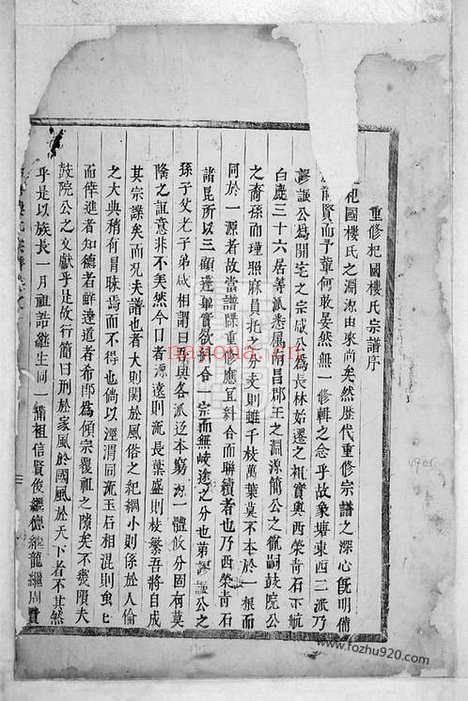 重修杞國樓氏宗譜序
杞國樓氏之淵源由來尚矣然歷代重修宗譜之深心旣明備
賢而予輩何敢晏然無一修輯之念乎故象塘東西二派乃
謬諏公為開宅之宗咸公為長林始遷之祖實與西榮青石
白麂三十六居等派悉屬南昌郡王之淵源簡公之胤嗣鼓院公
之裔孫而瑾照麻員托之分支則雖千枝萬葉莫不本於一根而
同於一源者故當譜牒重修應宜糾合而聯續者也乃西榮青石
諸昆所以三顧蓬蓽實欲糾合一宗而無岐途之分也第謬諏公之
孫子父老子弟咸相謂曰吾與各派辺本窮源一體攸分固有莫
隆之誼意非不矣然今日者源遠則流長葉盛則枝繁吾將自成
其宗譜矣而况夫譜也者大則関於風俗之紀綱小則係於人倫
之大典稍有冒昧苟而不得也倘以涇渭同流玉石相混則
而倖進者知德者鮮達道者希即為傾宗覆祖之隙矣不幾隕夫
鼓院公之文獻乎是故行簡曰刑於家風於國風於天下者不其然
乎是以族長一月祖誥繼生同一靖祖信賢俊繼德龍繼周實
nayona.cn
www.fozhu920.com